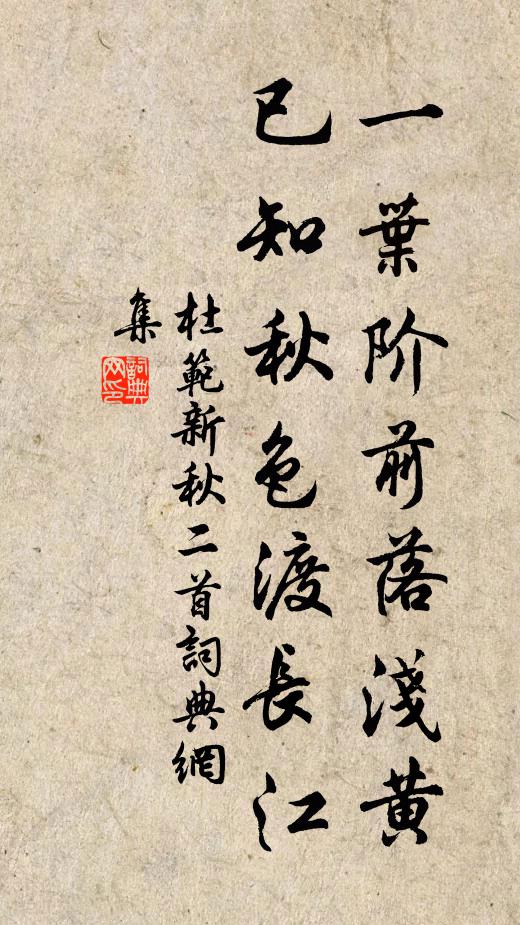 一葉阶前落淺黄
已知秋色渡長江
杜範新秋二首詞典網
集
詞典網印